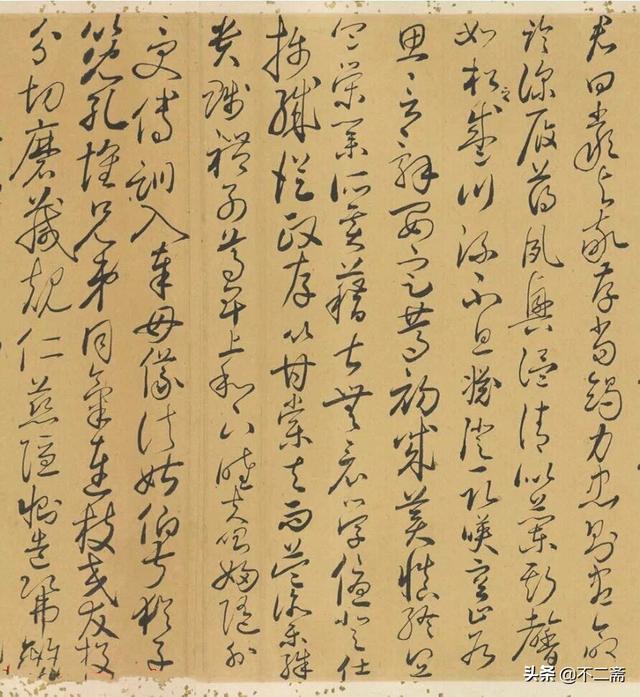 君曰嚴與敬孝當竭力忠則盡命
臨深履薄夙興溫清似蘭斯馨
如松之盛川流不息澄取暎容止若
思言辭安定篤初誠美慎終宜
令榮業所基藉甚無竟學優登仕
攝職從政存以甘棠去而益詠樂殊
貴賤禮別尊卑上和下睦夫唱婦隨外
受傅訓入奉母儀諸姑伯叔猶子
比兒孔懷兄弟同氣連枝交友投
分切磨箴規仁慈隱惻造次弗離
头条 @不二斋